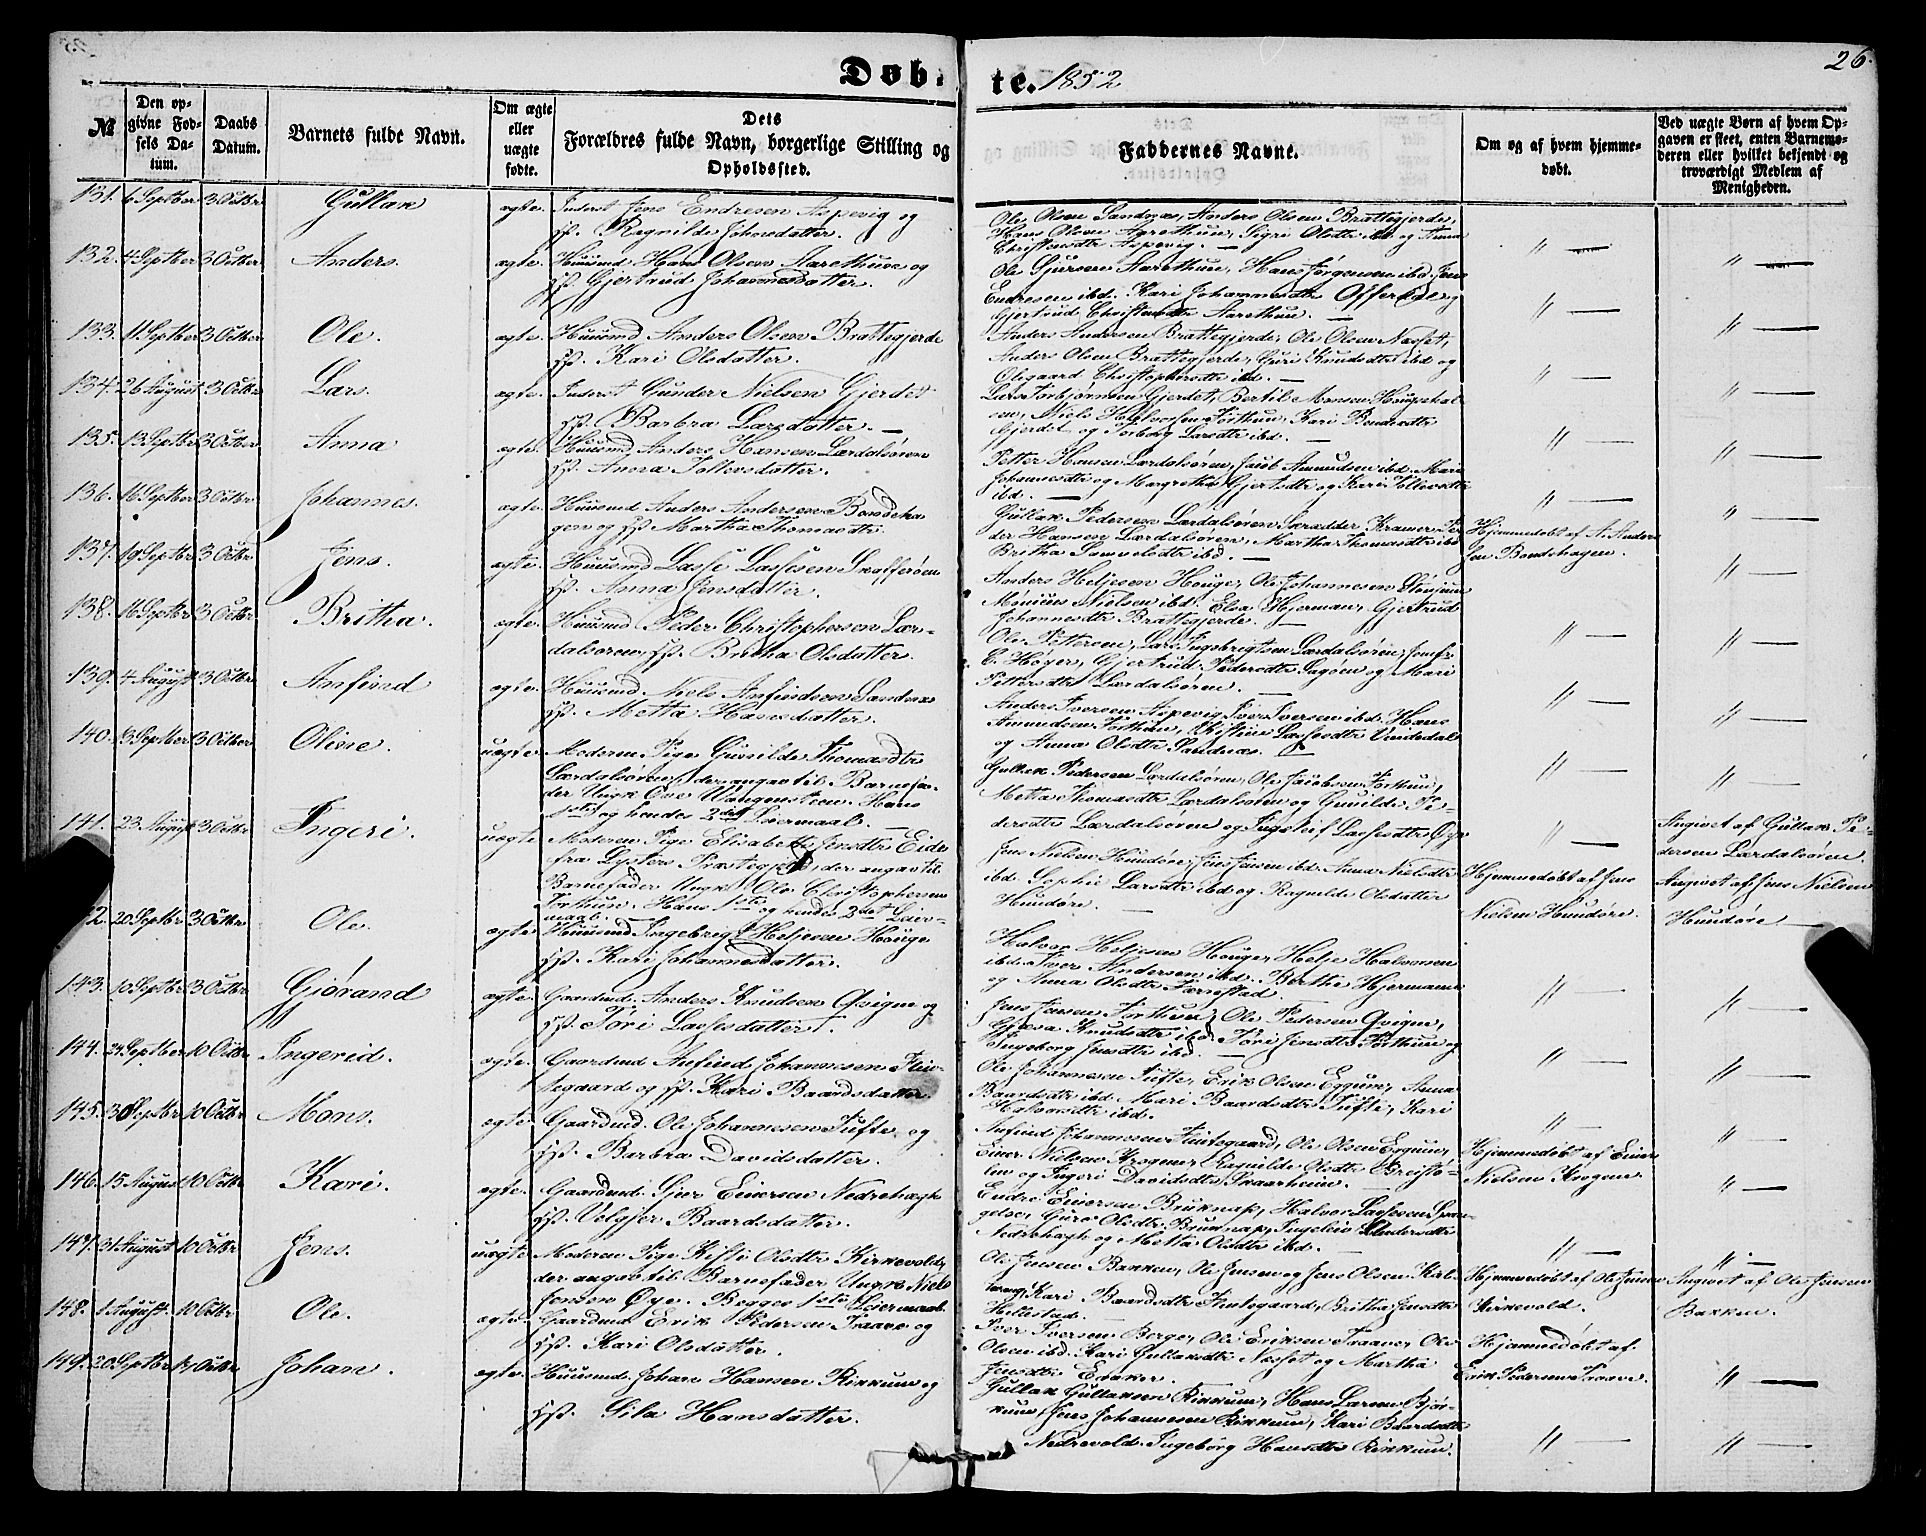 Døbte. 1852
26.
№
Den opgivne Fødsels Datum.
Daabs Datum.
Barnets fulde Navn.
Om ægte eller uægte fødte.
Dets Forældres fulde Navn, borgerlige Stilling og Opholdssted.
Faddernes Navne.
Om og af hvem hjemmedøbt.
Ved uægte Børn af hvem Opgaven er skeet, enten Barnemoderen eller hvilket bekjendt og troværdigt Medlem af Menigheden.
131. 6 Septbr 3 Octbr. Gullak ægte. Inderst Jens Endresen Aspevig og
Hst. Ragnilde Johnsdatter.
Ole Olsen Sandnæs, Anders Olsen Brattegjerde,
Hans Olsen Aarethun, Sigri Olsdtr ibd og Anna
Christensdtr Aspevig. —
132. 4 Septber 3 Octber Anders. ægte. Huusmd Hans Olsen Aarethun og
Hst. Gjertrud Johannesdatter.
Ole Sjursen Aarethun, Hans Jørgensen ibd. Jens
Endresen ibd. Kari Johannesdtr Offerdal og
Gjertrud Christensdtr Aarethun. —
133. 11 Septber 3 Octber. Ole. ægte. Huusmd Anders Olsen Brattegjerde
Hst. Kari Olsdatter.
Anders Andersen Brattegjerde, Ole Olsen Næsset,
Anders Olsen Brattegjerde, Guri Knudsdtr ibd og
Olegaard Christophersdtr ibd. —
134. 26 August 3 Octbr. Lars. ægte. Inderst Gunder Nielsen Gjerdet
Hst. Barbra Larsdatter. —
Lars Torbjørnsen Gjerdet, Bertil Monsen
Niels Halvorsen Torthun, Kari
Gjerdet og Torborg Larsdtr ibd.
135. 13 Septber 3 Octbr. Anna ægte. Huusmd Anders Hansen Lærdalsøren
Hst. Anna Tollevsdatter.
Petter Hansen Lærdalsøren, Jacob Amundsen ibd. Mari
Johannesdtr og Margretha Gjertsdtr og Kari Tollevsdtr
ibd. —
136. 16 Septbr 3 Octbr. Johannes. ægte. Huusmd Anders Andersen Bondeha
gen og Hst. Martha Thomasdtr
Gullak Pedersen Lærdalsøren, Skrædder Kramer, Pe
der Hansen Lærdalsøren, Martha Thomasdtr ibd
Britha Samuelsdtr ibd. —
Hjemmedøbt af A. Anders
sen Bondehagen.
137. 19 Septbr 3 Octbr. Jens. ægte. Huusmd Lasse Lassesen Skafferøen
Hst. Anna Jensdatter.
Anders Heljesen Houge, Ole Johannesen Stønjum
Monicus Nielsen ibd. Elsa Hjerman, Gjertrud
Johannesdtr Brattegjerde.
138. 16 Septbr 3 Octbr. Britha. ægte. Huusmd Peder Christophersen Lær-
dalsøren, Hst. Britha Olsdatter.
Ole Pettersen, Lars Ingebrigtsen Lærdalsøren, Jomfr.
E. Høyer, Gjertrud Pedersdtr Øgøen og Mari
Pettersdtr Lærdalsøren. —
139. 4 August 3 Octbr. Anfind ægte. Huusmd. Niels Anfindsen Sandnæs
Hst. Metta Hansdatter.
Anders Iversen Aspevig Iver Iversen ibd. Hans
Amundsen Torthun, Kristine Lassesdtr Vindedal
og Anna Olsdtr Sandnæs. —
140. 3 Septber 3 Octber. Oline. uægte. Moderen Pige Gunilde Thomasdtr
Lærdalsøren, der angav til Barnefa-
der Ungk Ove Wangensteen. Hans
1ste og hendes 2det Leiermaal. —
Gullak Pedersen Lærdalsøren, Ole Jacobsen Torthun,
Metta Thomasdtr Lærdalsøren og Gunilde Pe-
dersdtr Lærdalsøren og Lassesdtr Øye
Angivet af Gullak Pe-
dersen Lærdalsøren.
141. 23 August 3 Octbr Ingeri. uægte Moderen Pige Elisabeth Jensdtr Eide
fra Lysters Præstegjeld, der angav til
Barnefader Ungk. Ole Christophersen
Torthun. Hans 1ste og hendes 2det Leier-
maal.
Jens Nielsen Hundøre, Jens Jensen ibd. Anna Nielsdtr
ibd. Sophie Larsdtr ibd og Ragnilde Olsdatter
Hundøre. —
Hjemmedøbt af Jens
Nielsen Hundøre.
Angivet af Jens Nielsen
Hundøre —
2. 20 Septbr 3 Octbr. Ole. ægte. Huusmd Ingebrigt Heljesen Houge
Hst. Kari Johannesdatter.
Halvor Heljesen Houge, Helje Halvorsen
ibd. Iver Andersen ibd. Berthe Hjermann
og Anna Olsdtr Tørrestad.
143. 10 Septbr 3 Octbr. Gjørand ægte. Gaardmd. Anders Knudsen Qvigne og
Hst. Tøri Lassesdatter.
Jens Jensen Torthun, Ole Pedersen Qvigne,
Gjøsa Knudsdtr ibd. Tøri Jensdtr Torthun og
Ingeborg Jensdtr ibd. —
144. 24 Septbr 10 Octbr. Ingerid. ægte. Gaardmd Anfind Johannesen Flin-
tegaard og Hst. Kari Baardsdatter.
Ole Johannesen Tufte, Erik Olsen Eggum, Anna
Baardsdtr ibd. Mari Baardsdtr Tufte, Kari
Halvorsdtr ibd.
145. 30 Septbr 10 Octbr. Mons. ægte. Gaardmd. Ole Johannesen Tufte og
Hst. Barbra Davidsdatter.
Anfind Johannesen Flintegaard, Ole Olsen Eggum,
Einer Nielsen Krogene, Ragnilde Olsdtr Breistø-
len og Ingeri Davidsdtr Skaarheim. —
Hjemmedøbt af Einer
Nielsen Krogene
146. 15 August 10 Octbr. Kari. ægte. Gaardmd. Sjur Einersen Nedrehægh
Hst. Velgjer Baardsdatter.
Endre Einersen Bruknap, Halvor Lassesen Span-
gelse, Guro Olsdtr Bruknap, Ingeleiv Endersdtr
Nedrehægh og Metta Olsdtr ibd. —
147. 31 August 10 Octbr. Jens. uægte Moderen Pige Kisti Olsdtr Kirkevold,
der angav til Barnefader Ungk. Niels
Jensen Øye. Begges 1ste Leiermaal.
Ole Jensen Bakken, Ole Jensen og Jens Olsen
Kari Baardsdtr Flintegaard, Britha Jensdtr
Hellestad.
Hjemmedøbt af Ole Jensen
Kirkevold.
Angivet af Ole Jensen
Bakken.
148. 1 August. 10 Octbr. Ole. ægte. Gaardmd Erik Pedersen Traave og
Hst. Kari Olsdatter.
Iver Iversen Berge, Ole Eriksen Traave, Ole
Olsen ibd. Kari Gullaksdtr Næsset og Martha
Jensdtr Eraker.
Hjemmedøbt af.
Erik Pedersen Traave.
149. 20 Septbr 17 Octbr. Johan. ægte. Huusmd. Johan Hansen Rikkum og
Hst. Sila Hansdatter.
Gullak Gullaksen Rikkum, Hans Larsen Bjør-
kum, Jens Johannesen Rikkum, Kari Baardsdtr
Nedrevold. Ingeborg Hansdtr Rikkum.